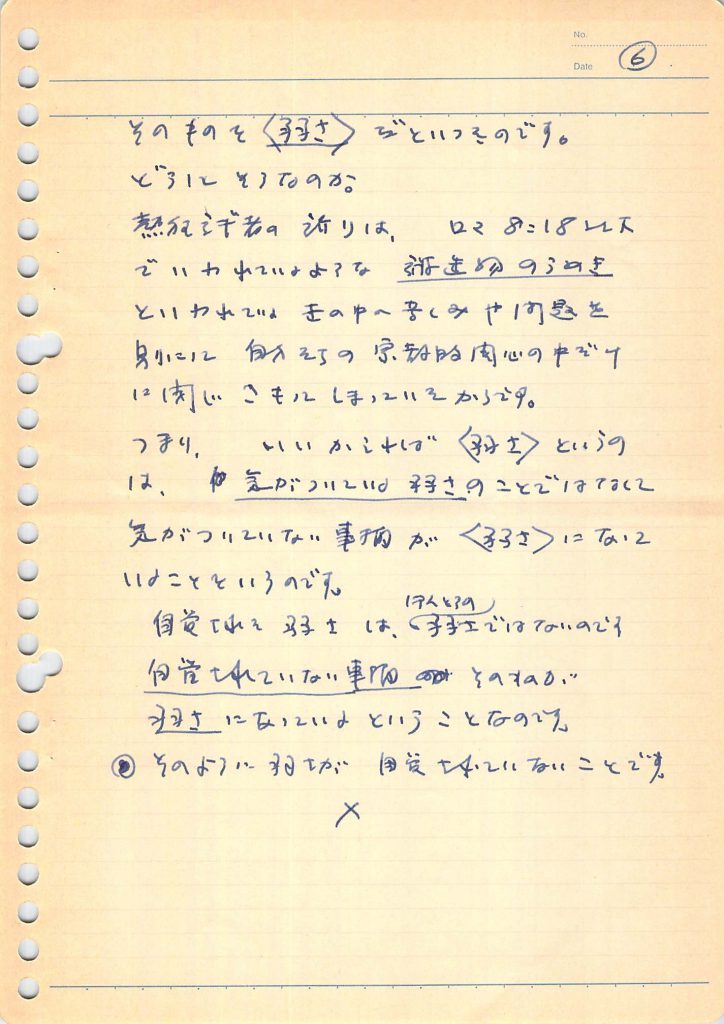 No.
Date ⑥
そのものを〈弱さ〉だといったのです。
どうして そうなのか。
熱狂主義者の 祈りは、 ロマ 8:18以下
でいわれているような 被造物のうめき
といわれている 世の中の苦しみや問題を
別にして 自分たちの宗教的関心の中だけ
に閉じこもってしまっているからです。
つまり、 いいかえれば〈弱さ〉というの
は、 気がついている 弱さのことではなくて
気がついていない 事柄が〈弱さ〉になって
いることをいうのです。
自覚された 弱さは、ほんとうの弱さではないのです
自覚されていない事柄 そのものが
弱さになっているということなのです。
そのように弱さが 自覚されていないことです。
×